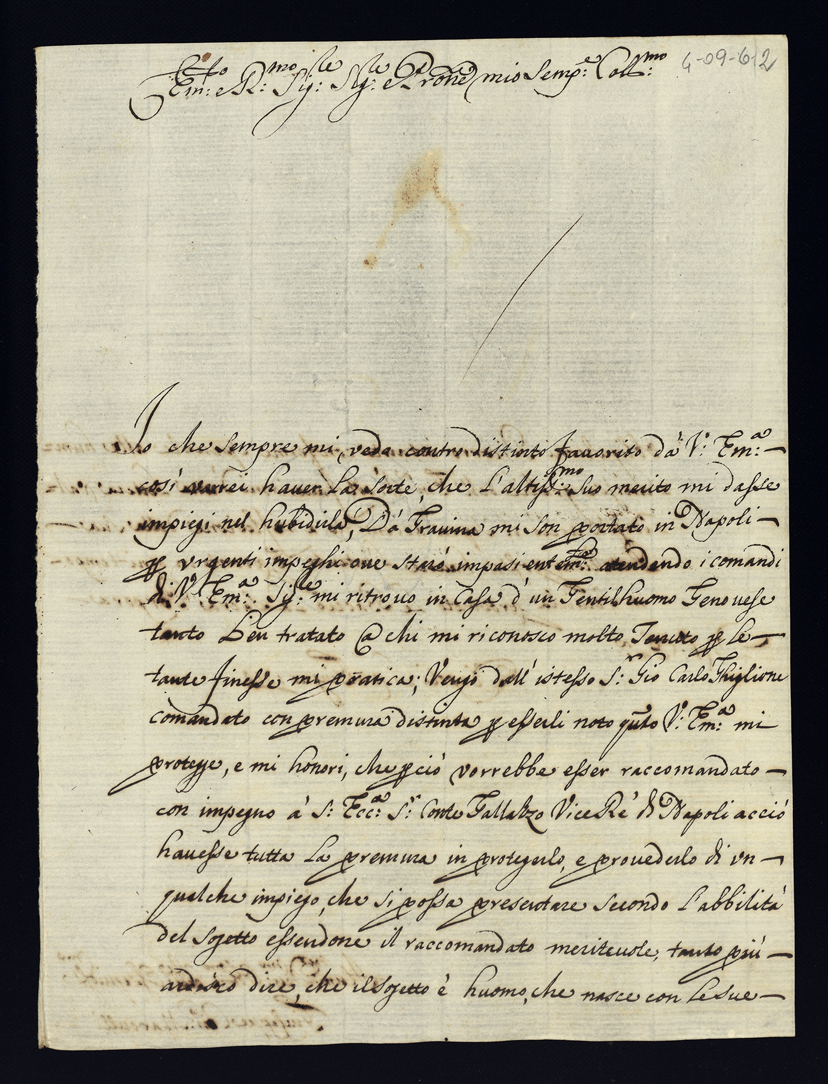 4-09-6/2
Em:to e R:mo Sig:re Sig:re e Prone mio Semp:e Coll:mo
Io che sempre mi veda contradistinto favorito dà V: Em:a –
così vorrei haver la sorte, che l'altiss:mo suo merito mi dasse
impiegi nel hubidirla, Dà Gravina mi son portato in Napoli –
p urgenti impeghi ove starò impasientem:te atendendo i comandi
di V: Em:a Sig:re mi ritrovo in Casa d'un Gentilhuomo Genovese
tanto ben tratato @ chi mi riconosco molto Tenuto p le –
tante finesse mi pratica; Vengo dall' istesso S:r Gio Carlo Ghiglione
comandato con premura distinta p esserli noto qto V: Em:a mi
protegge, e mi honori, che p ciò vorrebbe esser raccomandato –
con impegno à S: Ecc:a S:r Conte Gallazzo Vice Rè di Napoli acciò
havesse tutta la premura in protegerlo, e provederlo di un –
qualche impiego, che si possa presentare secondo l'abbilità
del sogetto essendone il raccomandato meritevole, tanto più –
ardisco dire, che il sogetto è huomo, che nasce con le sue –